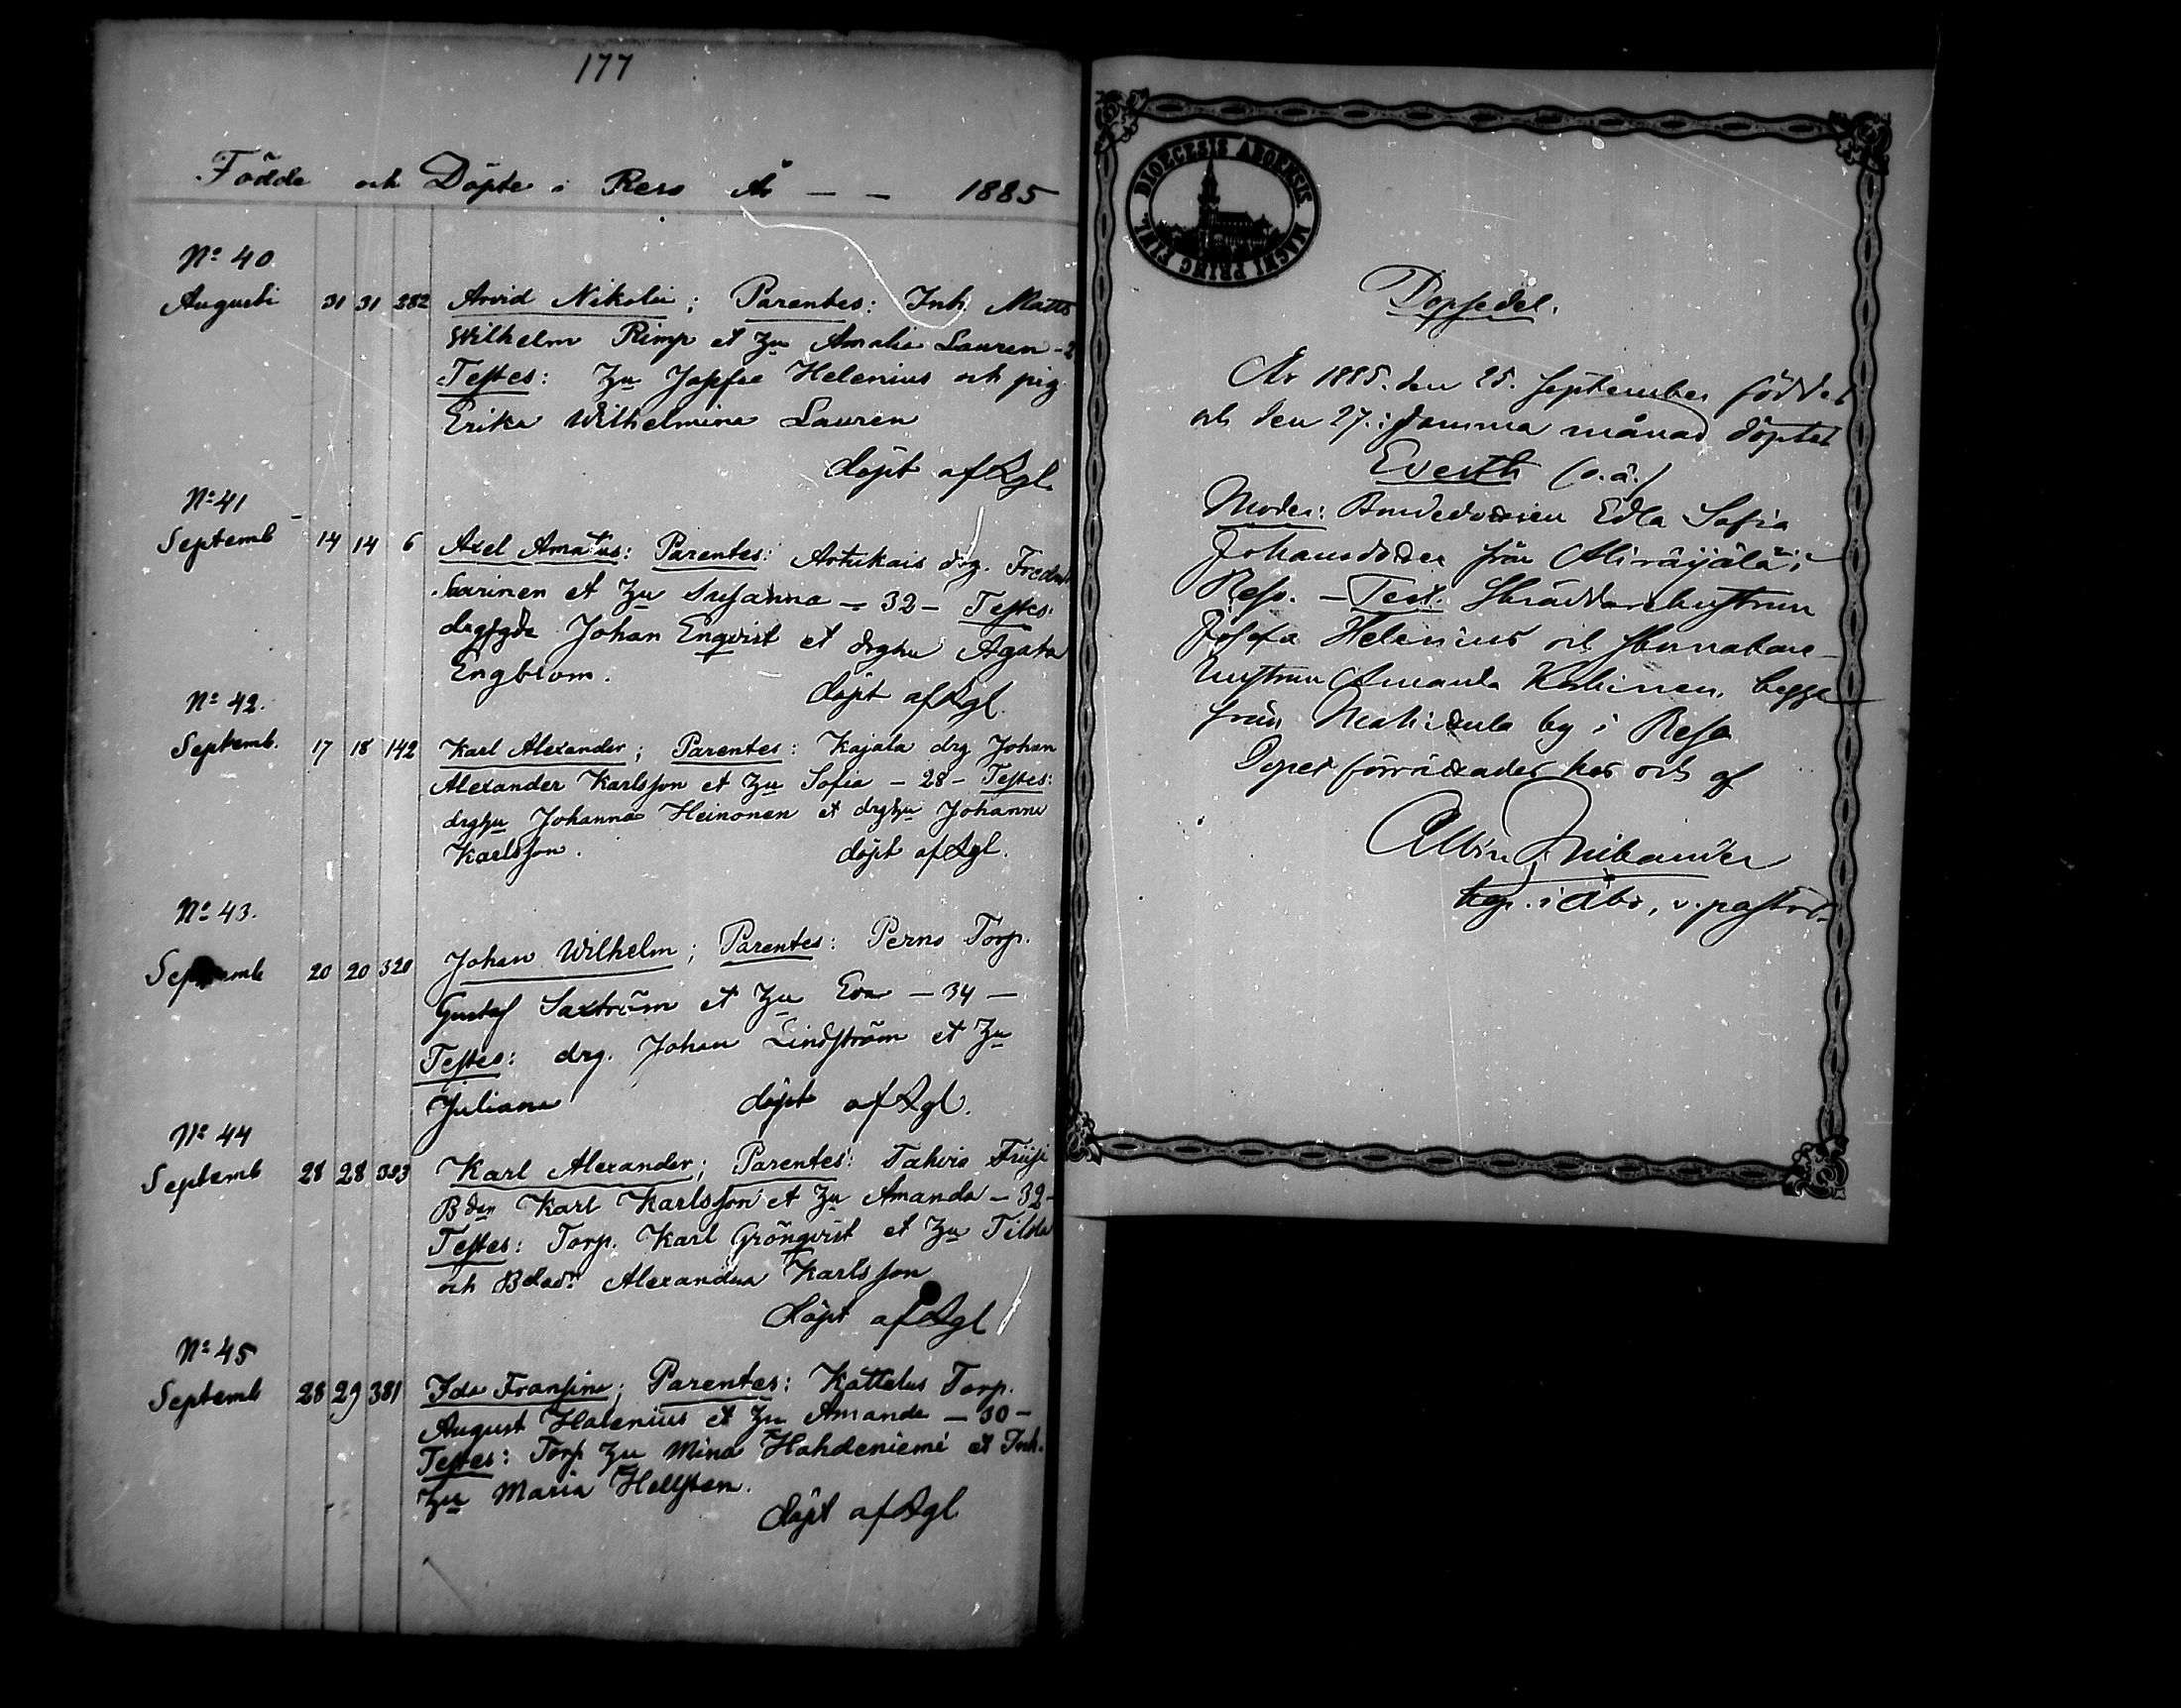 177
Födde och Döpte i Reso År — — 1885
No 40
Augusti 31 31 282 Arvid Nikolai; Parentes: Inh. Matts
Wilhelm Rimp et hu Amalia Lauren
Testes: hu Josefse Helenius och pig.
Erika Wilhelmina Lauren
döpt af Lgl.
No 41
Septemb 14 14 6 Axel Amatus: Parentes: Artukais drg. Fredrik
Saarinen et hu Susanna — 32 — Testes:
Johan Enqvist et drghu Agata
Engblom.
döpt af Lgl.
No 42.
Septemb. 17 18 142 Karl Alexander; Parentes: Kajala drg Johan
Alexander Karlsson et hu Sofia — 28 — Testes:
drghu Johanna Heinonen et drghu Johanna
Karlsson. döpt af Lgl.
No 43.
Septemb 20 20 320 Johan Wilhelm; Parentes: Perno Torp.
Gustaf Saxtröm et hu Eva — 34 —
Testes: drg. Johan Lindström et hu
Juliana döpt af Lgl.
No 44
Septemb 28 28 323 Karl Alexander; Parentes: Tahvio
Bden Karl Karlsson et hu Amanda — 32 —
Testes: Torp. Karl Grönqvist et hu Tilda
och Alexandra Karlsson
döpt af Lgl
No 45
Septemb 28 29 381 Ida Fransina; Parentes: Kattelus Torp.
August Halenius et hu Amanda — 30 —
Testes: Torp hu Mina Hahdeniemi et Inh.
hu Maria Hellsten.
döpt af Lgl
DIOECESIS ABOENSIS MAGNI PRINC FINL.
Dopsedel.
År 1885. den 25. September föddes
och den 27. i samma månad döptes
Everth (o.ä.)
Moder: Bondedottern Edla Sofia
Johansdotter från Aliräijälä i
Reso. — Test. Skräddarehustrun
Josefa Helenius och
hustrun Amanda begge
från by i Reso
Dopet förrättades her och af
Albin
kap. i Åbo, v. pastor.